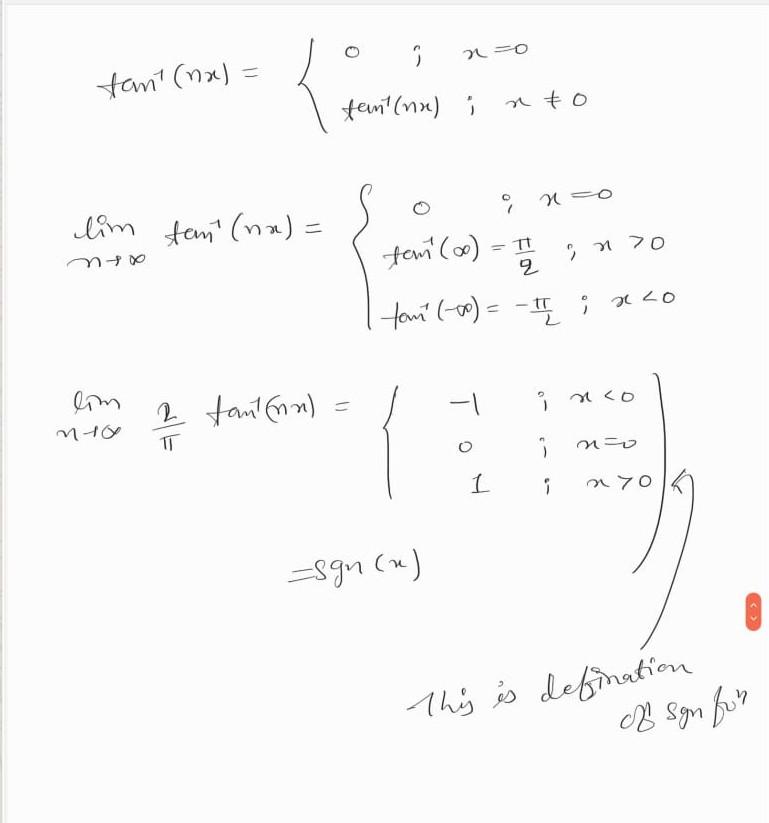 tan⁻¹(nx) = { 0 ; x=0
tan⁻¹(nx) ; x ≠ 0
lim n→∞ tan⁻¹(nx) = { 0 ; x=0
tan⁻¹(∞) = π/2 ; x >0
tan⁻¹(-∞) = -π/2 ; x <0
lim n→∞ 2/π tan⁻¹(nx) = { -1 ; x <0
0 ; x=0
1 ; x >0
=sgn(x)
This is defination
of sgn fun